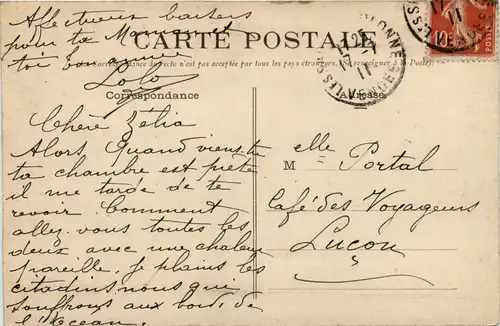 Affectueux baisers
pour ta Maman et
toi
Lolo
CARTE POSTALE
(La Correspondance au recto n'est pas acceptée par tous les pays étrangers. (Se renseigner à la Poste).
Correspondance
Adresse
Chère Zélia
Alors Quand viens-tu
ta chambre est prête
il me tarde de te
revoir. Comment
allez-vous toutes les
deux avec une chaleur
pareille, je plains les
citadins, nous qui
souffrons aux bords de
l'Océan.
M elle Portal
Café des Voyageurs
Luçon